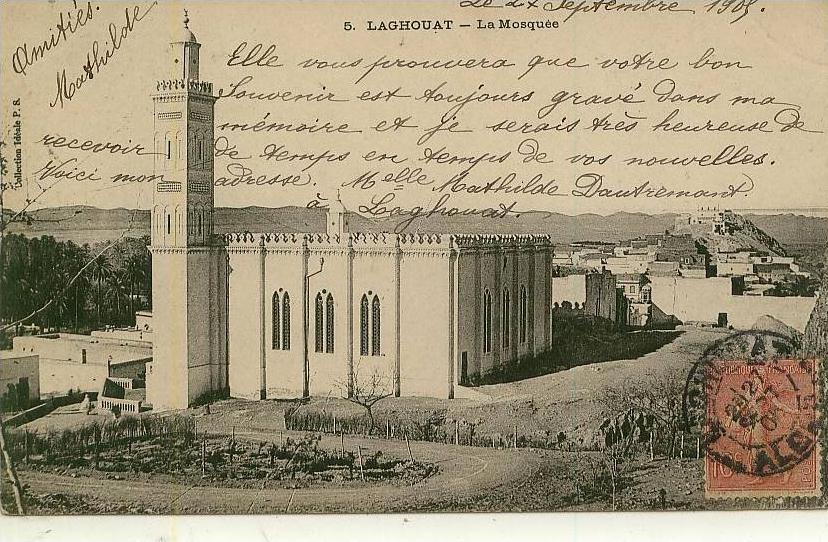 Le 27 Septembre 1905.
5. LAGHOUAT — La Mosquée
Amitiés.
Mathilde
Elle vous prouvera que votre bon
Souvenir est toujours gravé dans ma
mémoire et je serais très heureuse de
recevoir de temps en temps de vos nouvelles.
Voici mon adresse. Melle Mathilde Dautremant.
à Laghouat.
Collection Idéale P. S.